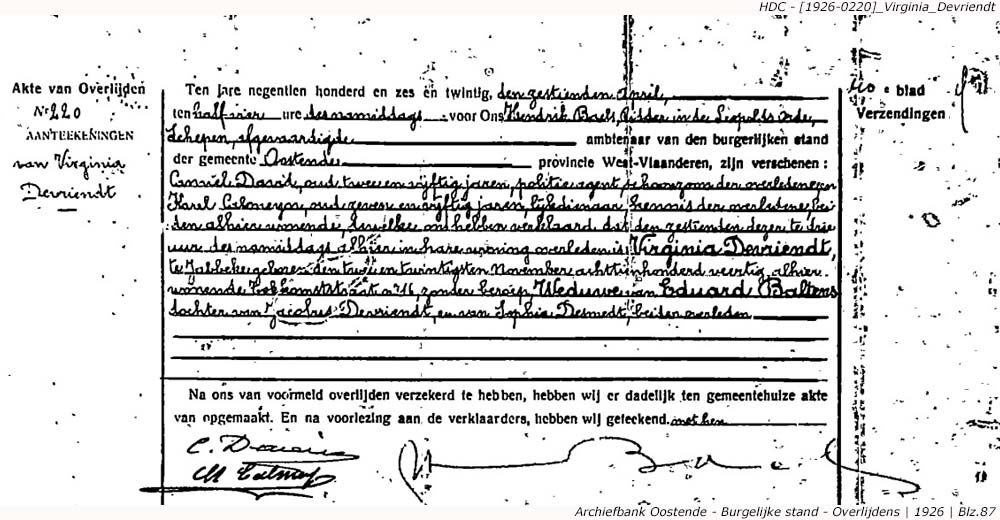 HDC - [1926-0220]_Virginia_Devriendt
Akte van Overlijden
Nr 220
AANTEEKENINGEN
van Virginia
Devriendt
Ten jare negentien honderd en zes en twintig, den zestienden April,
ten half vier ure des namiddags voor Ons Hendrik Baels, Ridder in de Leopolds orde,
Schepen, afgevaardigde ambtenaar van den burgerlijken stand
der gemeente Oostende provincie West-Vlaanderen, zijn verschenen :
Camiel David, oud twee en vijftig jaren, politie agent, schoonzoon der overledene en
Karel oud zeven en vijftig jaren, kennis der overledene, bei
den alhier wonende, dewelke ons hebben verklaard dat den zestienden dezer te drie
ure des namiddags alhier in hare woning overleden is Virginia Devriendt,
te Jabbeke geboren den twee en twintigsten November achttienhonderd veertig, alhier
wonende nr 16, zonder beroep, Weduwe van Eduard Baltens
dochter van Jacobus Devriendt, en van Sophia Desmedt, beiden overleden
Na ons van voormeld overlijden verzekerd te hebben, hebben wij er dadelijk ten gemeentehuize akte
van opgemaakt. En na voorlezing aan de verklaarders, hebben wij geteekend met hen
e blad
Verzendingen
Archiefbank Oostende - Burgelijke stand - Overlijdens | 1926 | Blz.87